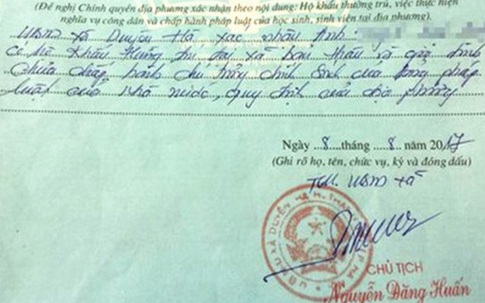 (Đề nghị Chính quyền địa phương xác nhận theo nội dung: Hộ khẩu thường trú, việc thực hiện
nghĩa vụ công dân và chấp hành pháp luật của học sinh, sinh viên tại địa phương).
UBND xã Duyên Hà xác nhận Anh:
Có hộ khẩu thường trú tại xã bản thân và gia đình
chưa chấp hành chủ trương chính sách của Đảng pháp
luật của Nhà nước, quy định của địa phương
Ngày 8 tháng 8 năm 2017
(Ghi rõ họ, tên, chức vụ, ký và đóng dấu)
TM. UBND xã
CHỦ TỊCH
Nguyễn Đăng Huấn